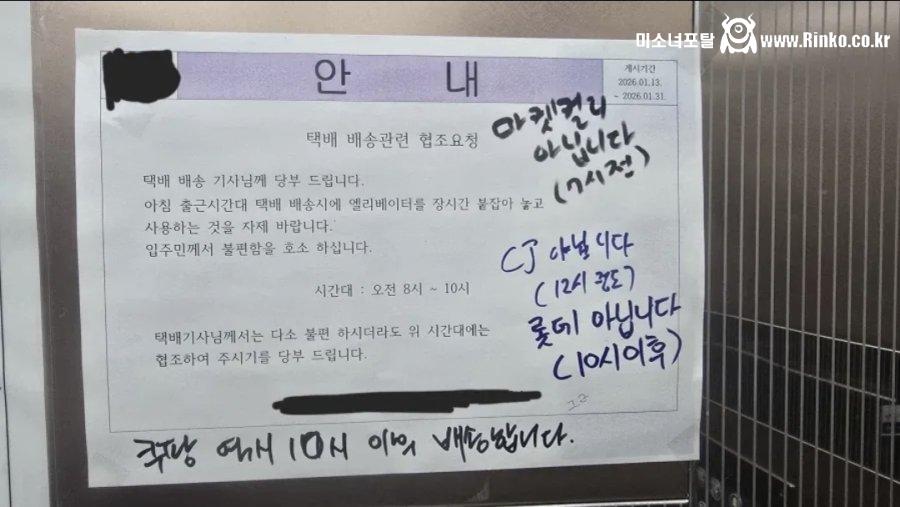 미소녀포탈 www.Rinko.co.kr
안 내
게시기간
2026.01.13.
~ 2026.01.31.
택배 배송관련 협조요청
마켓컬리
아닙니다
(7시전)
택배 배송 기사님께 당부 드립니다.
아침 출근시간대 택배 배송시에 엘리베이터를 장시간 붙잡아 놓고
사용하는 것을 자제 바랍니다.
입주민께서 불편함을 호소 하십니다.
시간대 : 오전 8시 ~ 10시
CJ 아닙니다
(12시 정도)
롯데 아닙니다
(10시이후)
택배기사님께서는 다소 불편 하시더라도 위 시간대에는
협조하여 주시기를 당부 드립니다.
쿠팡 역시 10시 이억 배송합니다.